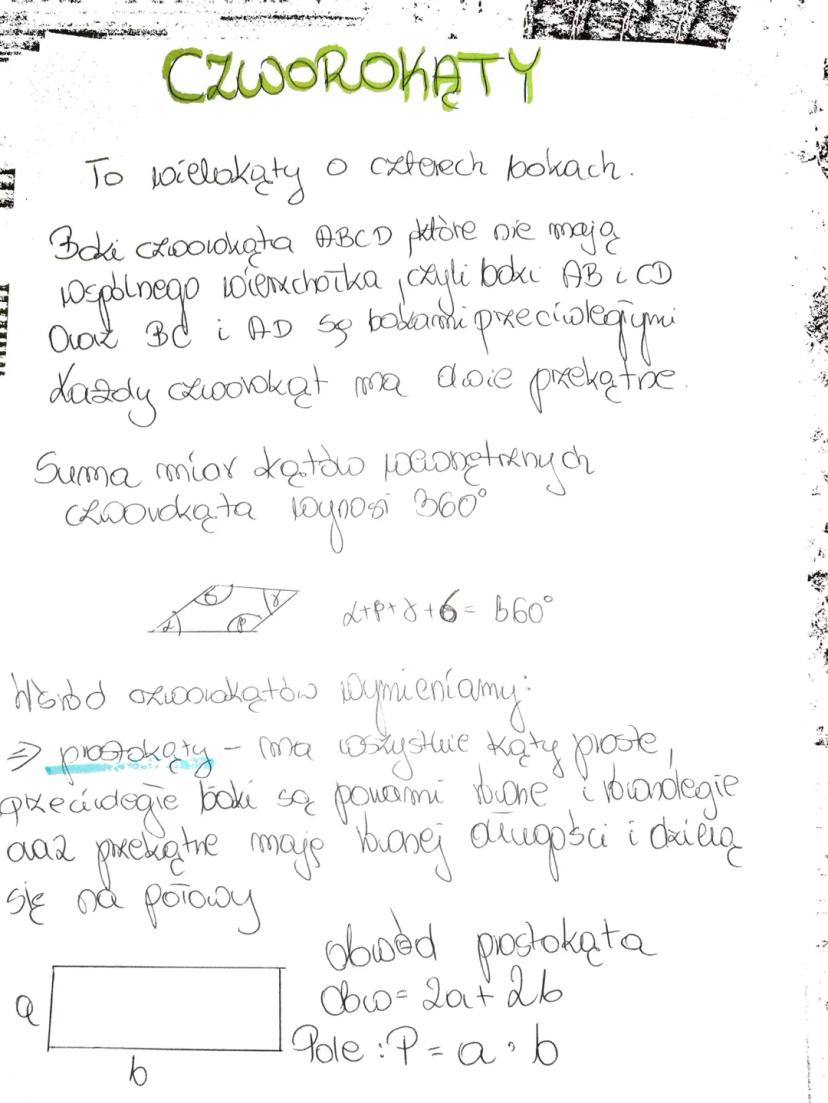 CZWOROKĄTY
To wielokąty o czterech bokach.
Boki czworokąta ABCD które nie mają
wspólnego wierzchołka, czyli boki AB i CD
oraz BC i AD są bokami przeciwległymi
Każdy czworokąt ma dwie przekątne.
Suma miar kątów wewnętrznych
czworokąta wynosi 360°
δ γ
α β
α+β+γ+δ= 360°
Wśród czworokątów wymieniamy:
⇒ prostokąty – ma wszystkie kąty proste,
przeciwległe boki są parami równe i równoległe
oraz przekątne mają równej długości i dzielą
się na połowy
obwód prostokąta
a
Obw= 2a+ 2b
Pole : P = a · b
b